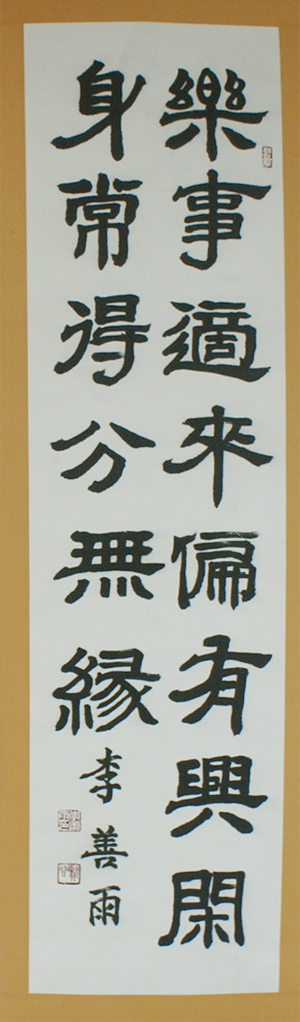 樂事適來偏有興閑
身常得分無緣
李善雨